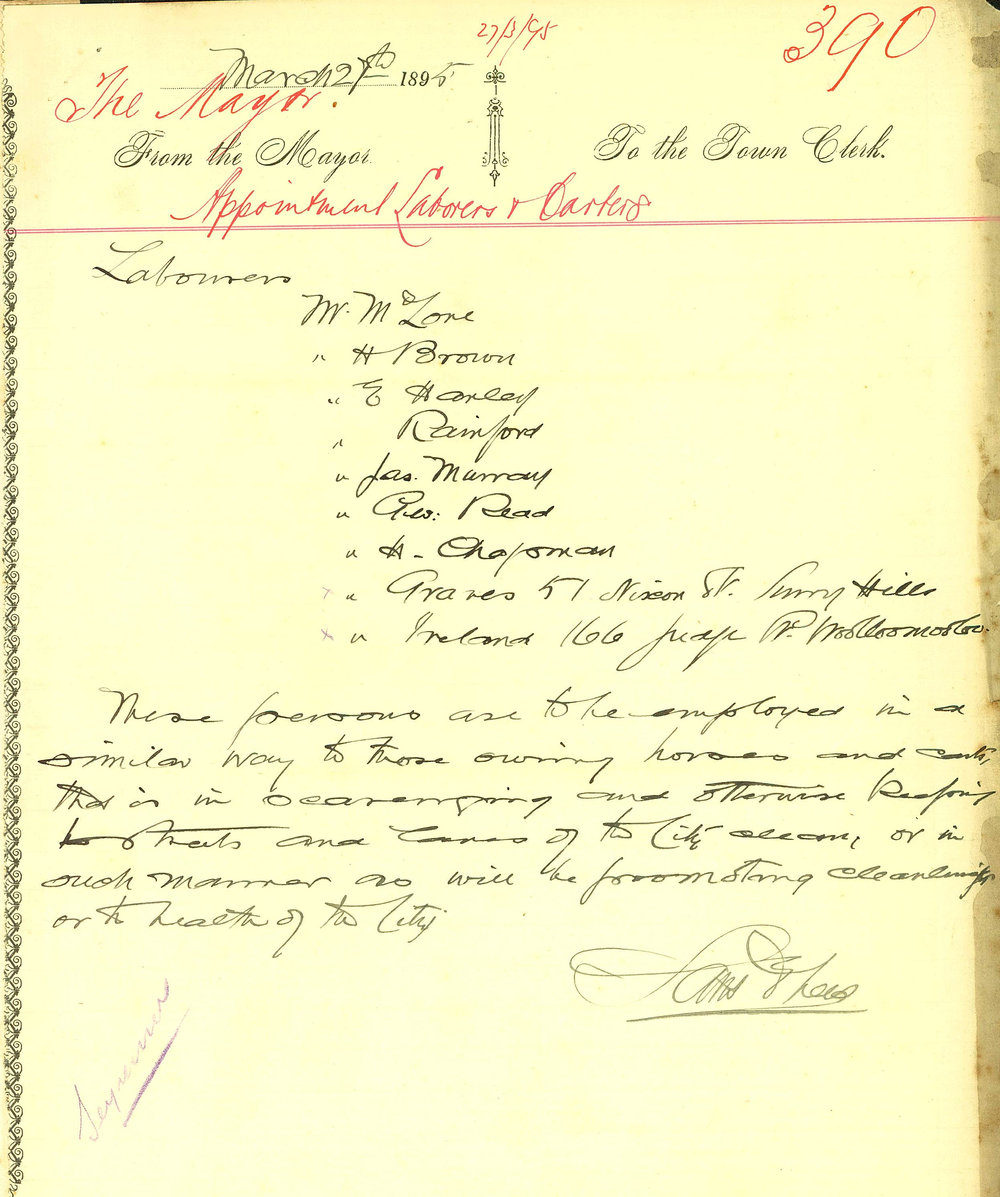 27/3/95
390
March 27th 1895
The Mayor.
From the Mayor.
To the Town Clerk.
Appointment Laborers & Carters
Labourers
Mr. McLone
" H Brown
" E Harley
" Rainford
" Jas. Murray
" Geo: Read
" H. Chapman
x " Graves 51 Nixon St. Surry Hills
x " Ireland 166 Judge St. Woolloomooloo.
These persons are to be employed in a
similar way to those owning horses and carts,
that is in scavenging and otherwise keeping
to streets and lanes of the City clean, or in
such manner as will be promoting cleanliness
or the health of the City
Seymour